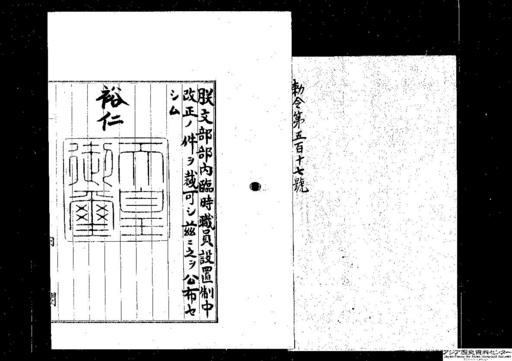 勅令第五百十七號
朕文部部內臨時職員設置制中
改正ノ件ヲ裁可シ茲ニ之ヲ公布セ
シム
裕仁
天皇
御璽
アジア歴史資料センター